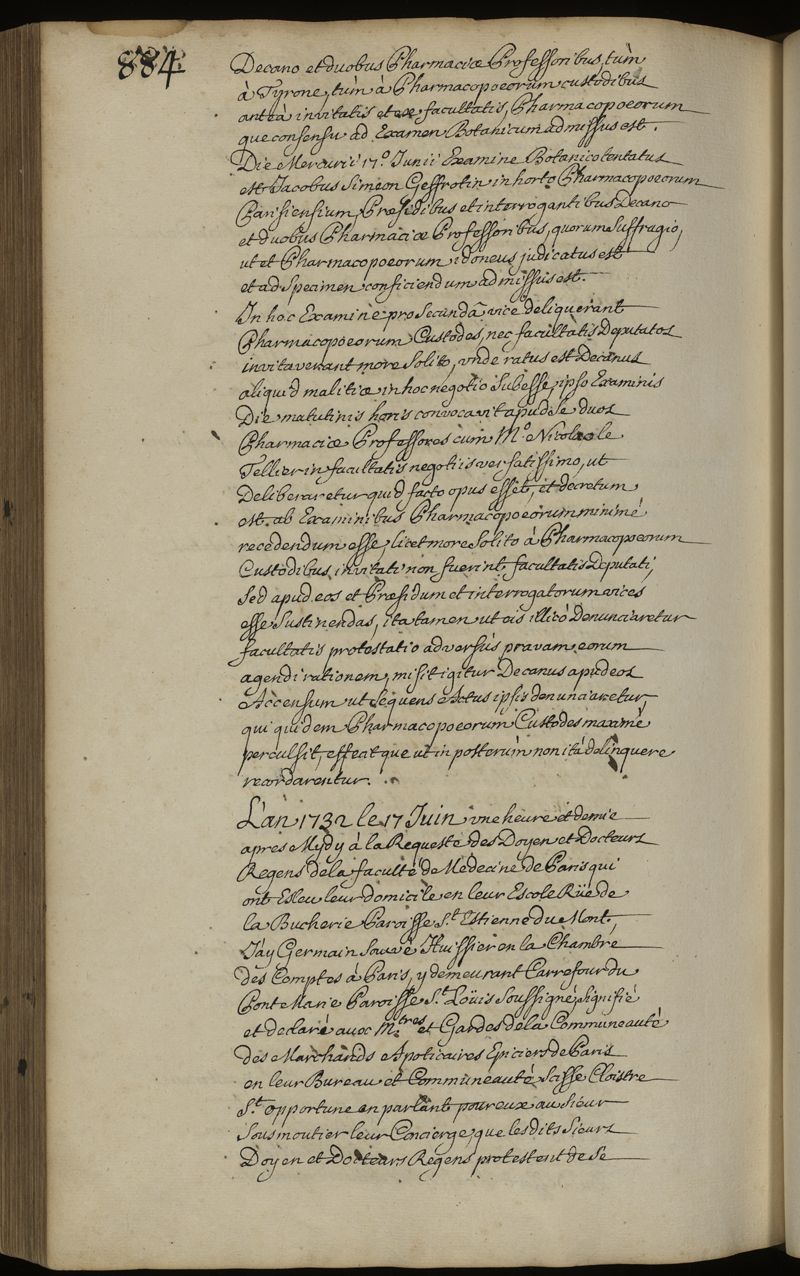 884.
Decano et duobus Pharmaciæ Professoribus, tùm
à Tyrone, tùm à Pharmacopoeorum custodibus
anteà invitatis et ex facultatis, Pharmacopoeorum
que consensu ad Examen Botanicum admissus est.
Die Mercurii 17.º Junii Examine Botanico tentatus
est Jacobus Simeon Geffrotin in horto Pharmacopoeorum
Parisiensium, Præsidibus et interrogantibus Decano
et duobus Pharmaciæ Professoribus, quorum suffragio,
ut et Pharmacopoeorum idoneus judicatus est
et ad Specimen conficiendum admissus est.
In hoc Examine pro Secundâ vice deliquerant
Pharmacopoeorum Custodes, nec facultatis Deputatos
invitaverant more Solito, vnde ratus est Decanus
aliquid malitiæ in hoc negotio Subesse, ipso Examinis
Die matutinis horis convocavit apud se duos
Pharmaciæ Professores cum M.º Nicolao le
Tellier in facultatis negotiis versatissimo, ut
Deliberaretur quid facto opus esset, et decretum
est ab Examinibus Pharmacopoeorum minimè
recedendum esse, licet more Solito à Pharmacopoeorum
Custodibus invitati non fuerint facultatis Deputati,
Sed apud eos et Præsidum et interrogatorum vices
esse Sustinendas, ita tamen ut eis illicò Denunciaretur
facultatis protestatio adversùs pravam eorum
agendi rationem, misit igitur Decanus apud eos
Accensum ut sequens Actus ipsis denunciaretur,
qui quidem Pharmacopoeorum Custodes maximè
perculsit, effecitque ut in posterùm non ità delinquere
recordarentur.
L'an 1732 le 17 Juin vne heure et demie
apres Mydy à la Requeste des Doyen et Docteurs
Regens de la faculté de Medecine de Paris qui
ont Esleu leur domicile en leur Escole Rüe de
la Bucherie Paroisse S.t Estienne du Mont,
J'ay Germain Sauvé Huissier en la Chambre
des Comptes à Paris, y demeurant Carrefour du
Pont Marie Paroisse S.t Loüis Soussigné, Signifié
et declaré aux M.tres et Gardes de la Communeauté
des Marchands Apoticaires Epiciers de Paris
en leur Bureau et Communeauté Scisse Cloistre
S.te Opportune en parlant pour eux au Sieur
Sousmoutier leur Concierge, que lesdits Sieurs
Doyen et Docteurs Regens protestent de Se